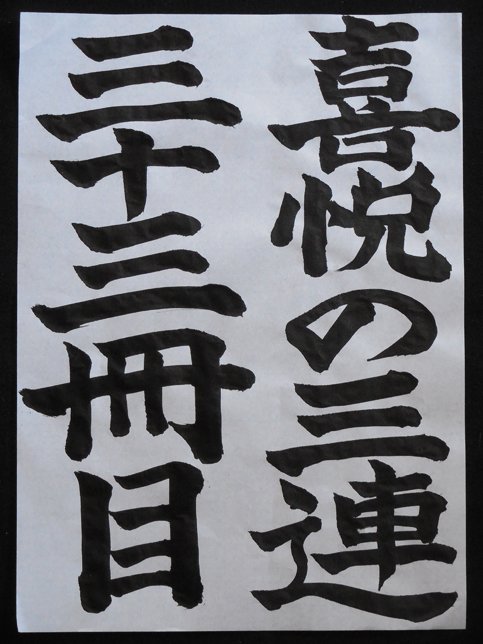 喜悦の三連
三十三冊目